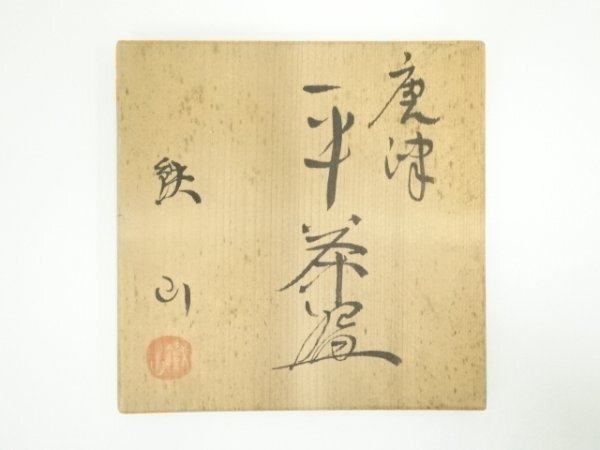 唐津
平茶碗
鉄山